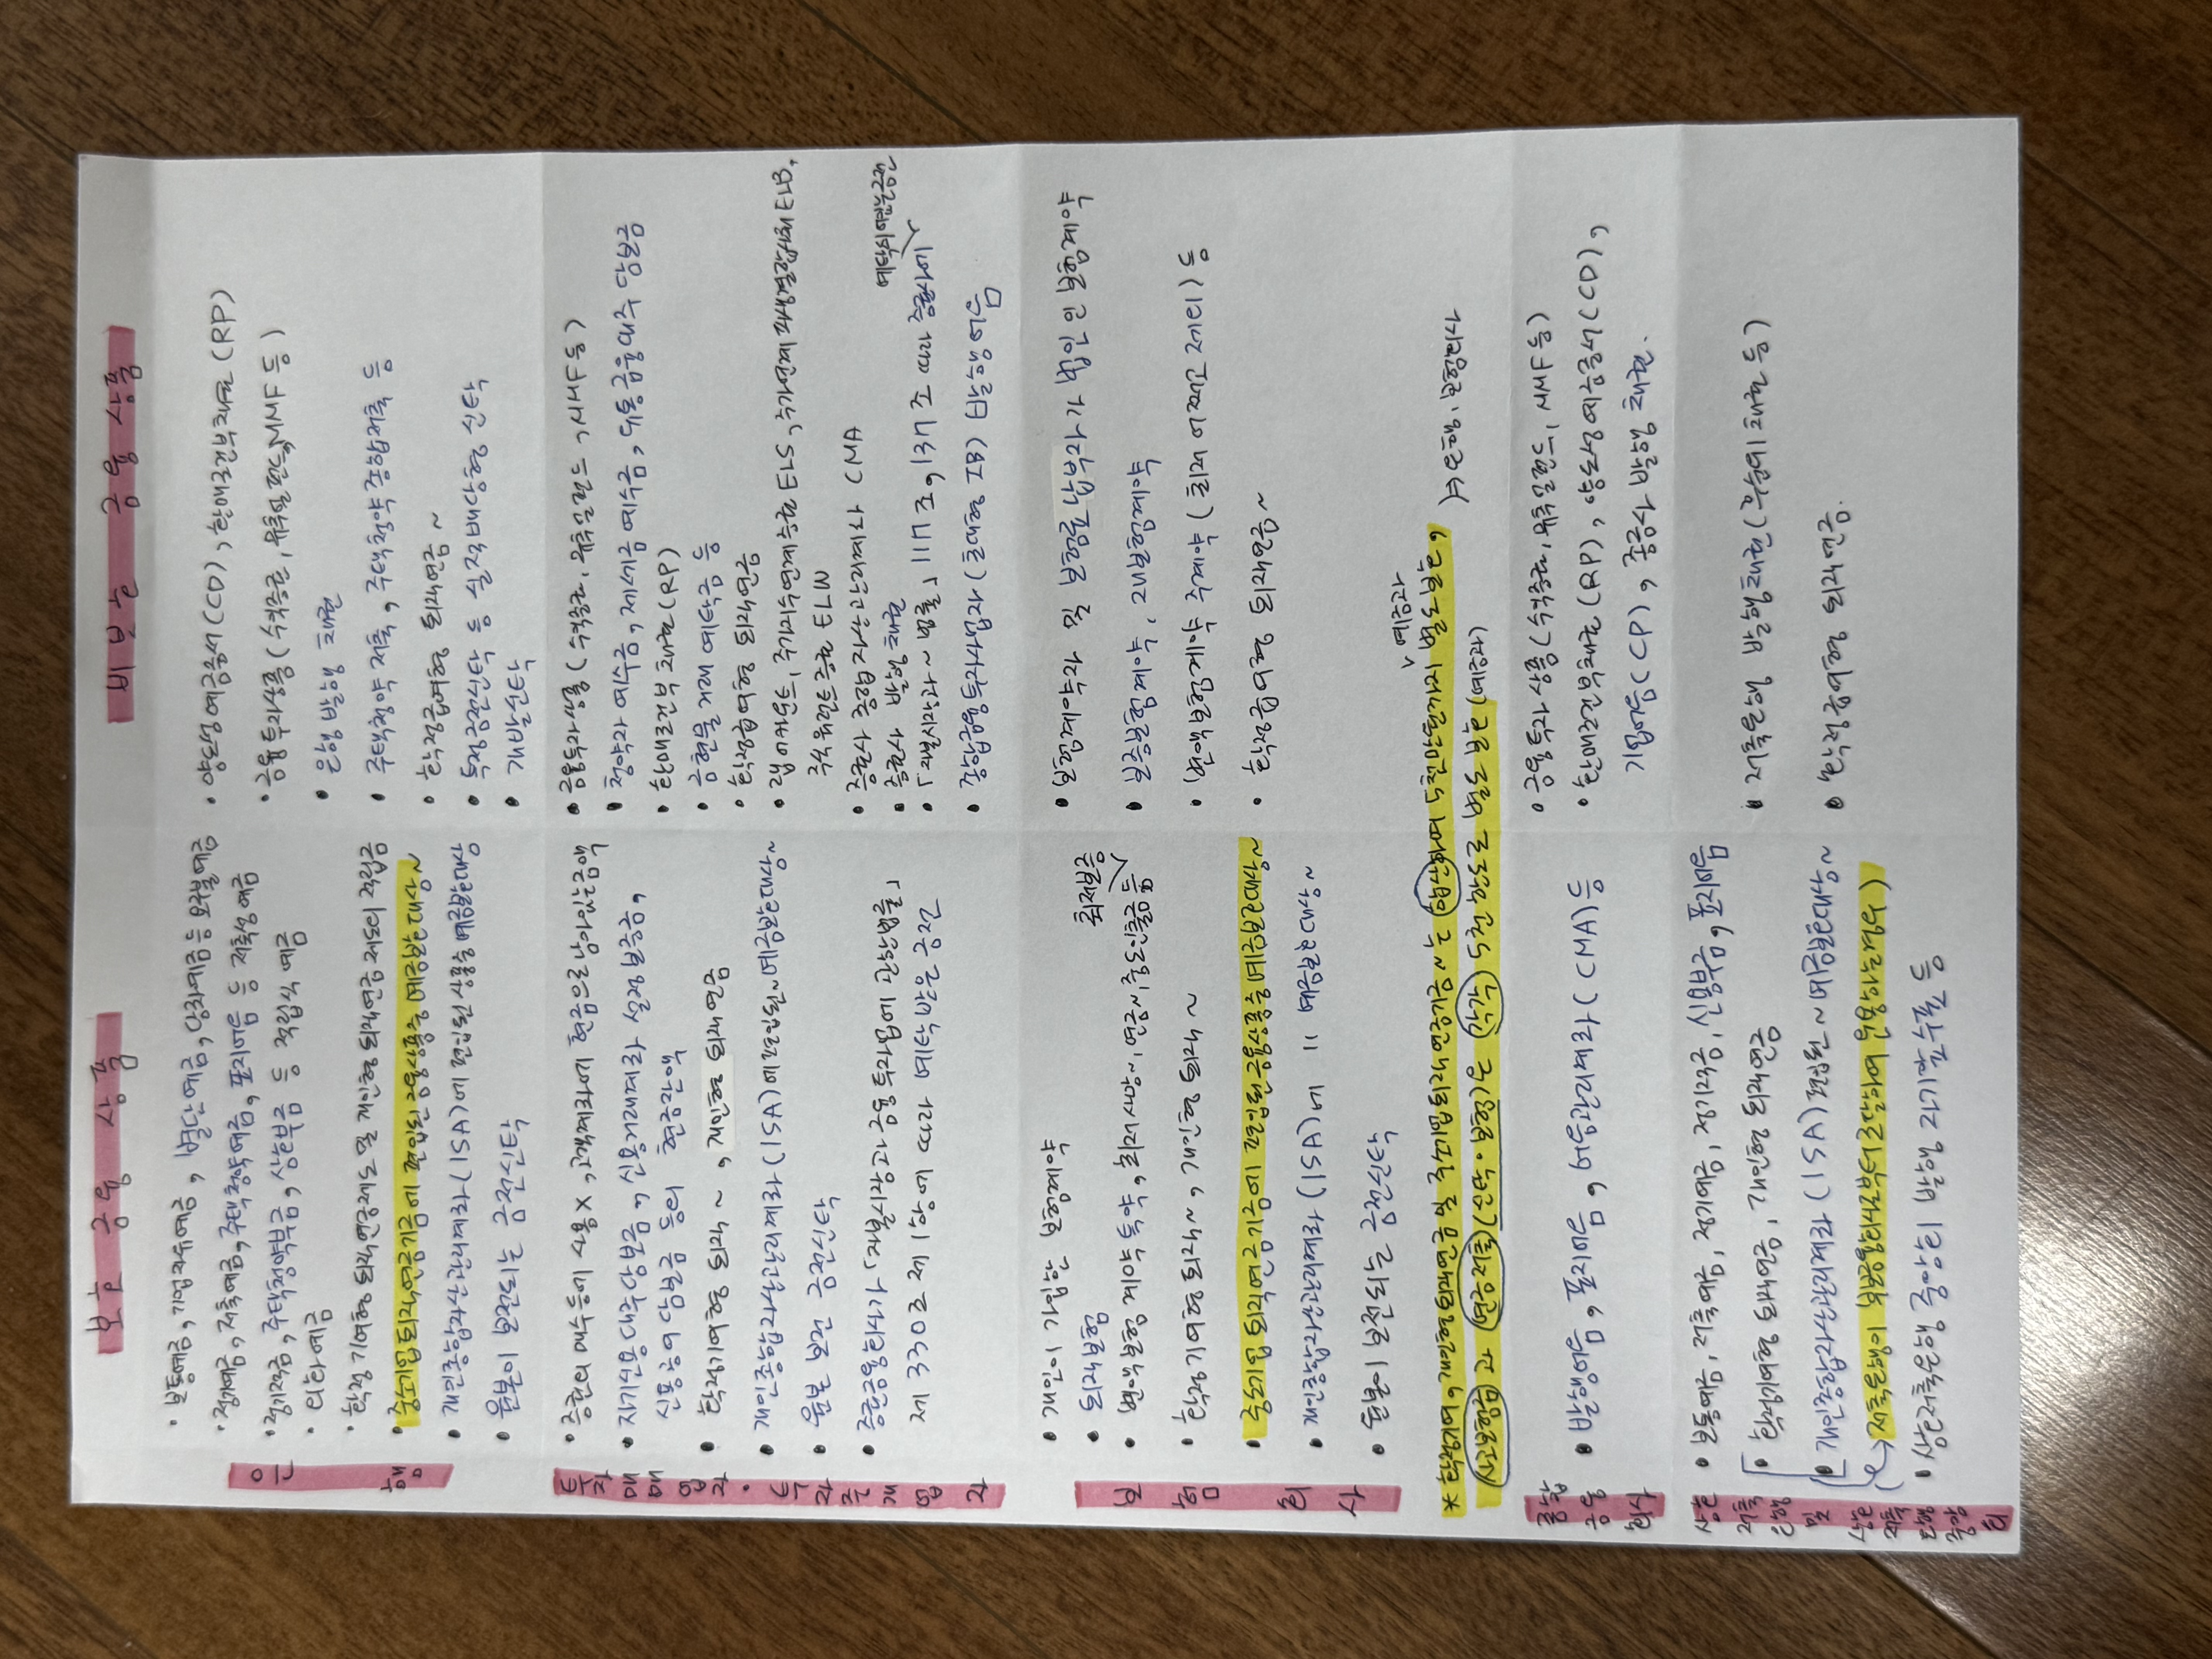 보호 금융 상품
비보호 금융 상품
은행
• 보통예금, 기업자유예금, 별단예금, 당좌예금 등 요구불예금
• 정기예금, 저축예금, 주택청약예금, 표지어음 등 저축성예금
• 정기적금, 주택청약부금, 상호부금 등 적립식 예금
• 외화예금
• 확정기여형 퇴직연금제도 및 개인형 퇴직연금 제도의 적립금
• 중소기업퇴직연금기금에 편입된 금융상품중 예금보호대상~
• 개인종합자산관리계좌(ISA)에 편입된 상품중 예금보호대상
• 원본이 보전되는 금전신탁
• 양도성예금증서(CD), 환매조건부채권(RP)
• 금융투자상품(수익증권, 뮤추얼펀드, MMF 등)
• 은행 발행 채권
• 주택청약저축, 주택청약종합저축 등
• 확정급여형 퇴직연금 ~
• 특정금전신탁 등 실적배당형 신탁
• 개발신탁
투자매매업자 · 투자중개업자
• 증권의 매수등에 사용X, 고객계좌에 현금으로 남아있는금액
• 자기신용대주담보금, 신용거래계좌 설정보증금,
신용공여담보금 등의 현금잔액
• 확정기여형 퇴직 ~, 개인형 퇴직연금
• 개인종합자산관리계좌(ISA)에 편입된~예금보호대상~
• 원본 보전 금전신탁
• 증권금융회사, 「자본시장과 금융투자업에 관한 법률」
제 330조 제1항에 따라 예탁받은 금전
• 금융투자상품(수익증권, 뮤추얼펀드, MMF 등)
• 청약자예수금, 제세금예수금, 유통금융대주 담보금
• 환매조건부채권(RP)
• 금현물거래예탁금 등
• 확정급여형 퇴직연금
• 랩어카운트, 주가지수연계증권 ELS, 주가연계파생결합사채 ELB,
주식워런트증권 ELW
• 증권사 종합자산관리계좌 CMA
• 증권사 발행채권
• 「자본시장~ 법률」 117조의8에 따라 증권사에 예탁되어있는금전
• 종합금융투자사업자(초대형 IB) 발행어음
보험회사
• 개인이 가입한 보험계약
• 퇴직보험
• 변액보험계약 특약, 최저사망~, 연금~, 중도인출금등 최저보증
• 확정기여형 퇴직~, 개인형 퇴직 ~
• 중소기업퇴직연금기금에 편입된금융상품중예금보호대상~
• 개인종합자산관리계좌(ISA)에 " 예금보호대상~
• 원본이 보전되는 금전신탁
• 보험계약자 및 보험료납부자가 법인인 보험계약
• 보증보험계약, 재보험계약
• 변액보험계약 주계약(최저보증 제외) 등
• 확정급여형 퇴직연금 ~
종합금융회사
• 발행어음, 표지어음, 어음관리계좌(CMA) 등
• 금융투자상품(수익증권, 뮤추얼펀드, MMF 등)
• 환매조건부채권(RP), 양도성예금증서(CD),
기업어음(CP), 종금사 발행 채권.
상호저축은행 및 상호저축은행중앙회
• 보통예금, 저축예금, 정기예금, 정기적금, 신용부금, 표지어음
• 확정기여형 퇴직연금, 개인형 퇴직연금
• 개인종합자산관리계좌(ISA) 편입된~예금보호대상~
• 상호저축은행중앙회 발행 자기앞수표 등
• 저축은행 발행채권(후순위채권 등)
• 확정급여형 퇴직연금.